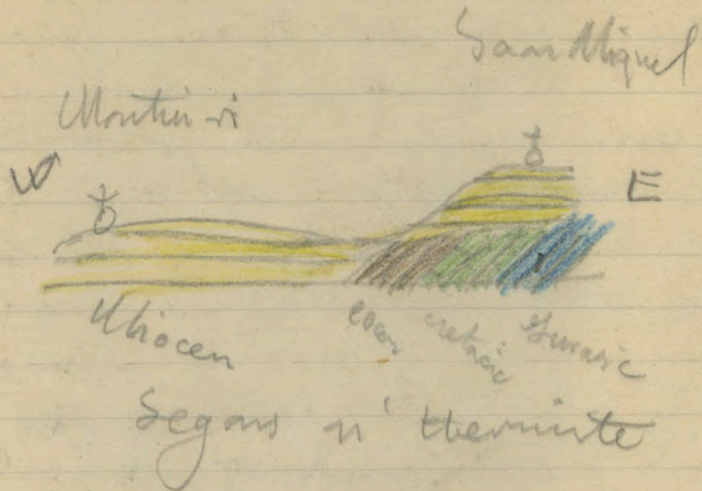 San Miquel
Montuiri
W
E
Miocen
eocen
cretacic
Jurasic
Segons n' Hermite